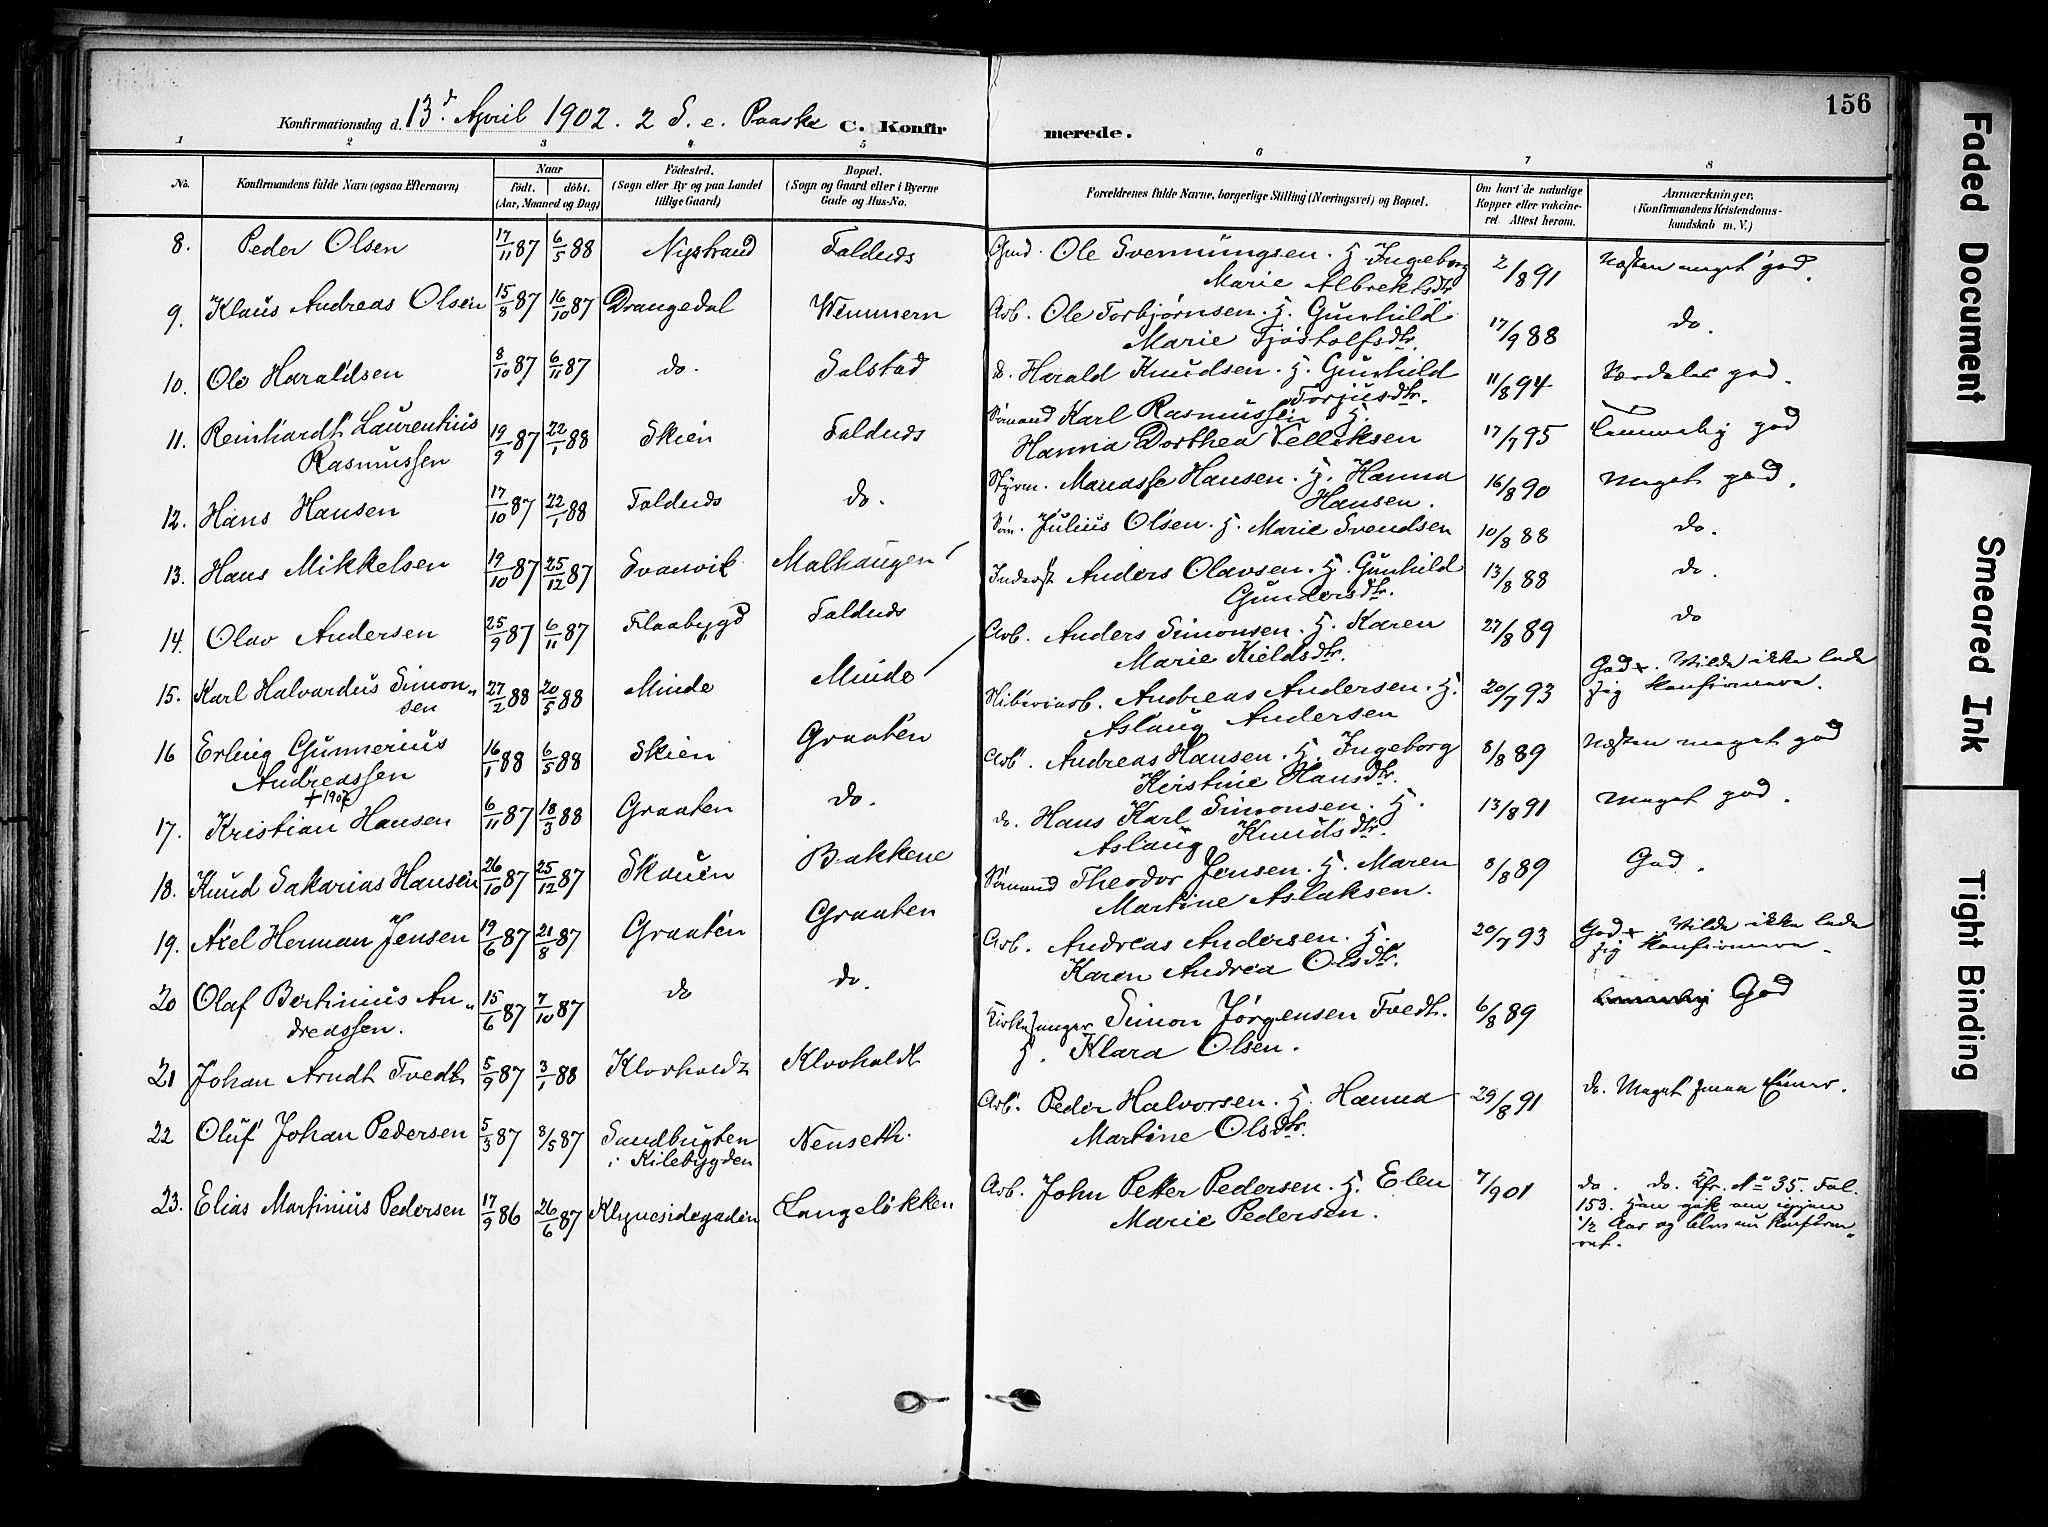 156
Konfirmationsdag d. 13d April 1902. 2 S. e. Paaske C. Konfir merede.
1 2 3 4 5 6 7 8
No. Konfirmandens fulde Navn (ogsaa Efternavn) Naar født. døbt. (Aar, Maaned og Dag) Fødested. (Sogn eller By og paa Landet tillige Gaard) Bopæl. (Sogn og Gaard eller i Byerne Gade og Hus-No. Forældrenes fulde Navne, borgerlige Stilling (Næringsvei) og Bopæl. Om havt de naturlige Kopper eller vakcineret. Attest herom. Anmærkninger. (Konfirmandens Kristendomskundskab m. V.)
8. Peder Olsen 17/11 87 6/5 88 Nystrand Falduds
Gmd. Ole Svennungsen. H. Ingeborg 2/8 91 Næsten meget god.
Marie Albrektsdtr.
9. Klaus Andreas Olsen 15/8 87 16/10 87 Drangedal Wemmern
Arb. Ole Torbjørnsen. H. Gunhild 17/9 88 do.
Marie Tjøstolfsdtr.
10. Ole Haraldsen 8/10 87 6/11 87 do. Solstad
do. Harald Knudsen. H. Gunhild 11/8 94 Særdeles god.
Torjusdtr.
11. Reinhardt Laurentius 19/9 87 22/1 88 Skien Falduds
Rasmussen
Sømand Karl Rasmussen H. 17/7 95 Temmelig god
Hanna Dorthea Velleksen
12. Hans Hansen 17/10 87 22/1 88 Falduds do.
Styrm. Manasse Hansen. H. Hanna 16/8 90 Meget god.
Hansen.
13. Hans Mikkelsen 19/10 87 25/12 87 Svanvik Malhaugen
Søm. Julius Olsen. H. Marie Svendsen 10/8 88 do.
Inderst Anders Olavsen. H. Gunhild 13/8 88 do.
Gundersdtr.
14. Olav Andersen 25/9 87 6/11 87 Flaabygd Falduds
Arb. Anders Simonsen. H. Karen 27/8 89 do
Marie Kieldsdtr.
15. Karl Halvardus Simon„ 27/2 88 20/5 88 Minde Minde
sen
Sliberiarb. Andreas Andersen. H. 20/7 93 God +. Vilde ikke lade
Aslaug Andersen sig konfirmere.
16 Erling Gunnerius 16/1 88 6/5 88 Skien Graaten
Andreassen
Arb. Andreas Hansen. H. Ingeborg 8/8 89 Næsten meget god
Kirstine Hansdtr.
+ 1907
17. Kristian Hansen 6/11 87 18/3 88 Graaten do.
do. Hans Karl Simonsen. H. 13/8 91 Meget god.
Aslaug Knudsdtr.
18. Knud Sakarias Hansen 26/10 87 25/12 87 Skauen Bakkene
Sømand Theodor Jensen. H. Maren 8/8 89 God.
Martine Aslaksen.
19. Axel Herman Jensen 19/6 87 21/8 87 Graaten Graaten
Arb. Andreas Andersen. H. 20/7 93 God + Vilde ikke lade
Karen Andrea Olsdtr. sig konfirmere.
20 Olaf Bertinius An„ 15/6 87 7/10 87 do do.
dreassen.
Kirkesanger Simon Jørgensen Tvedt. 6/8 89 God
H. Klara Olsen.
21 Johan Arndt Tvedt 5/9 87 3/1 88 Klovholdt Klovholdt
Arb. Peder Halvorsen. H. Hanna 29/8 91 do. Meget smaa Evner.
Martine Olsdtr.
22 Oluf Johan Pedersen 5/3 87 8/5 87 Sandbugten Nenseth.
i Kilebygden
23. Elias Martinius Pedersen 17/9 86 26/6 87 Klynesidegaden Langeløkken
Arb. John Petter Pedersen. H. Elen 7/9 01 do. do. Kfr. No 35. Fol.
Marie Pedersen. 153. Han gik om igjen
1/2 Aar og blev nu konfirm„
eret.
Faded Document
Smeared Ink
Tight Binding